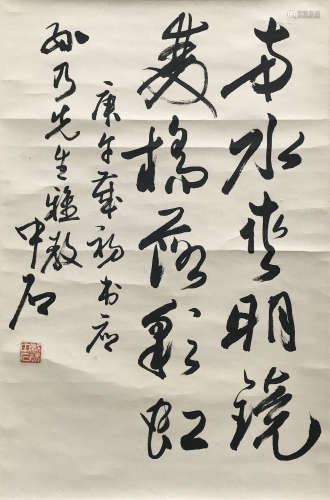 两水夹明镜
雙橋落彩虹
庚午歲初书应
孙乃先生雅教
中石